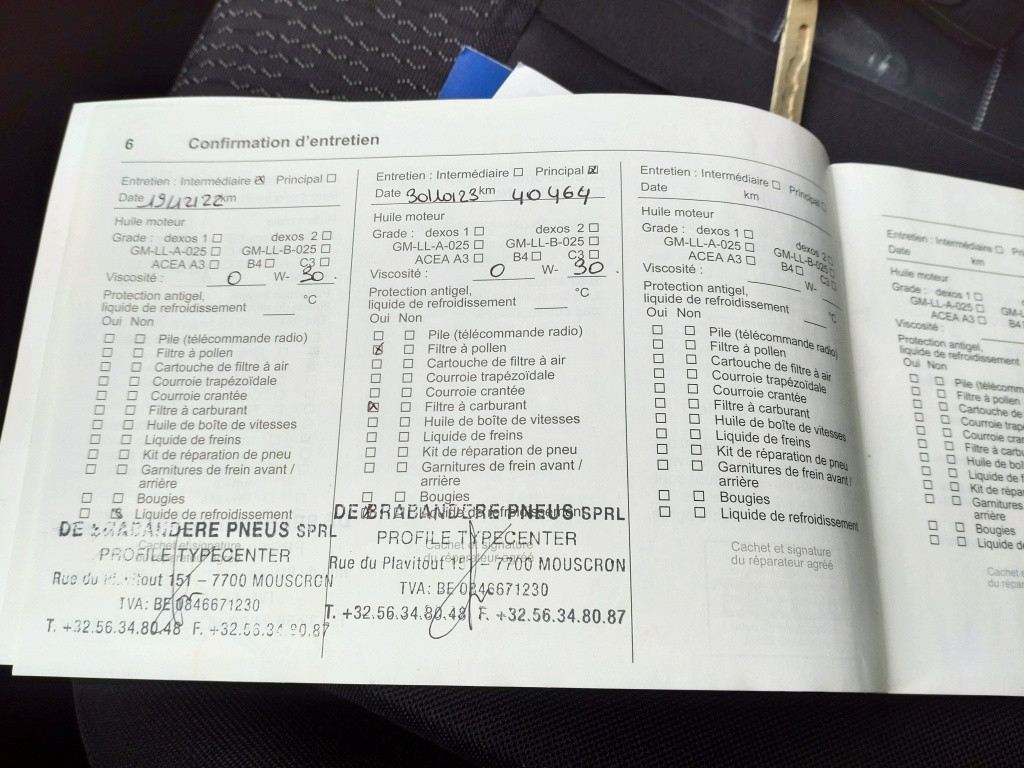 6 Confirmation d'entretien
Entretien : Intermédiaire ☒ Principal ☐
Date 19/12/22 km
Huile moteur
Grade : dexos 1 ☐ dexos 2 ☐
GM-LL-A-025 ☐ GM-LL-B-025 ☐
ACEA A3 ☐ B4 ☐ C3 ☐
Viscosité : 0 W- 30 .
Protection antigel, °C
liquide de refroidissement
Oui Non
☐ ☐ Pile (télécommande radio)
☐ ☐ Filtre à pollen
☐ ☐ Cartouche de filtre à air
☐ ☐ Courroie trapézoïdale
☐ ☐ Courroie crantée
☐ ☐ Filtre à carburant
☐ ☐ Huile de boîte de vitesses
☐ ☐ Liquide de freins
☐ ☐ Kit de réparation de pneu
☐ ☐ Garnitures de frein avant /
arrière
☐ ☐ Bougies
☐ ☒ Liquide de refroidissement
Cachet et signature
du réparateur agréé
DE BRABANDERE PNEUS SPRL
PROFILE TYPECENTER
Rue du Plavitout 151 – 7700 MOUSCRON
TVA: BE 0846671230
T. +32.56.34.80.48 F. +32.56.34.80.87
Entretien : Intermédiaire ☐ Principal ☒
Date 30/10/23 km 40464
Huile moteur
Grade : dexos 1 ☐ dexos 2 ☐
GM-LL-A-025 ☐ GM-LL-B-025 ☐
ACEA A3 ☐ B4 ☐ C3 ☐
Viscosité : 0 W- 30 .
Protection antigel, °C
liquide de refroidissement
Oui Non
☐ ☐ Pile (télécommande radio)
☒ ☐ Filtre à pollen
☐ ☐ Cartouche de filtre à air
☐ ☐ Courroie trapézoïdale
☐ ☐ Courroie crantée
☒ ☐ Filtre à carburant
☐ ☐ Huile de boîte de vitesses
☐ ☐ Liquide de freins
☐ ☐ Kit de réparation de pneu
☐ ☐ Garnitures de frein avant /
arrière
☐ ☐ Bougies
☐ ☐ Liquide de refroidissement
Cachet et signature
du réparateur agréé
DE BRABANDERE PNEUS SPRL
PROFILE TYPECENTER
Rue du Plavitout 151 – 7700 MOUSCRON
TVA: BE 0846671230
T. +32.56.34.80.48 F. +32.56.34.80.87
Entretien : Intermédiaire ☐ Principal ☐
Date km
Huile moteur
Grade : dexos 1 ☐ dexos 2 ☐
GM-LL-A-025 ☐ GM-LL-B-025 ☐
ACEA A3 ☐ B4 ☐ C3 ☐
Viscosité : W-
Protection antigel, °C
liquide de refroidissement
Oui Non
☐ ☐ Pile (télécommande radio)
☐ ☐ Filtre à pollen
☐ ☐ Cartouche de filtre à air
☐ ☐ Courroie trapézoïdale
☐ ☐ Courroie crantée
☐ ☐ Filtre à carburant
☐ ☐ Huile de boîte de vitesses
☐ ☐ Liquide de freins
☐ ☐ Kit de réparation de pneu
☐ ☐ Garnitures de frein avant /
arrière
☐ ☐ Bougies
☐ ☐ Liquide de refroidissement
Cachet et signature
du réparateur agréé
Entretien : Intermédiaire ☐ Pri
Date km
Huile moteur
Grade : dexos 1 ☐
GM-LL-A-025 ☐ GM-L
ACEA A3 ☐ B4
Viscosité :
Protection antigel,
liquide de refroidissement
Oui Non
☐ ☐ Pile (télécomm
☐ ☐ Filtre à pollen
☐ ☐ Cartouche de
☐ ☐ Courroie trap
☐ ☐ Courroie cran
☐ ☐ Filtre à carbu
☐ ☐ Huile de boî
☐ ☐ Liquide de f
☐ ☐ Kit de répar
☐ ☐ Garnitures
arrière
☐ ☐ Bougies
☐ ☐ Liquide de
Cachet e
du répar